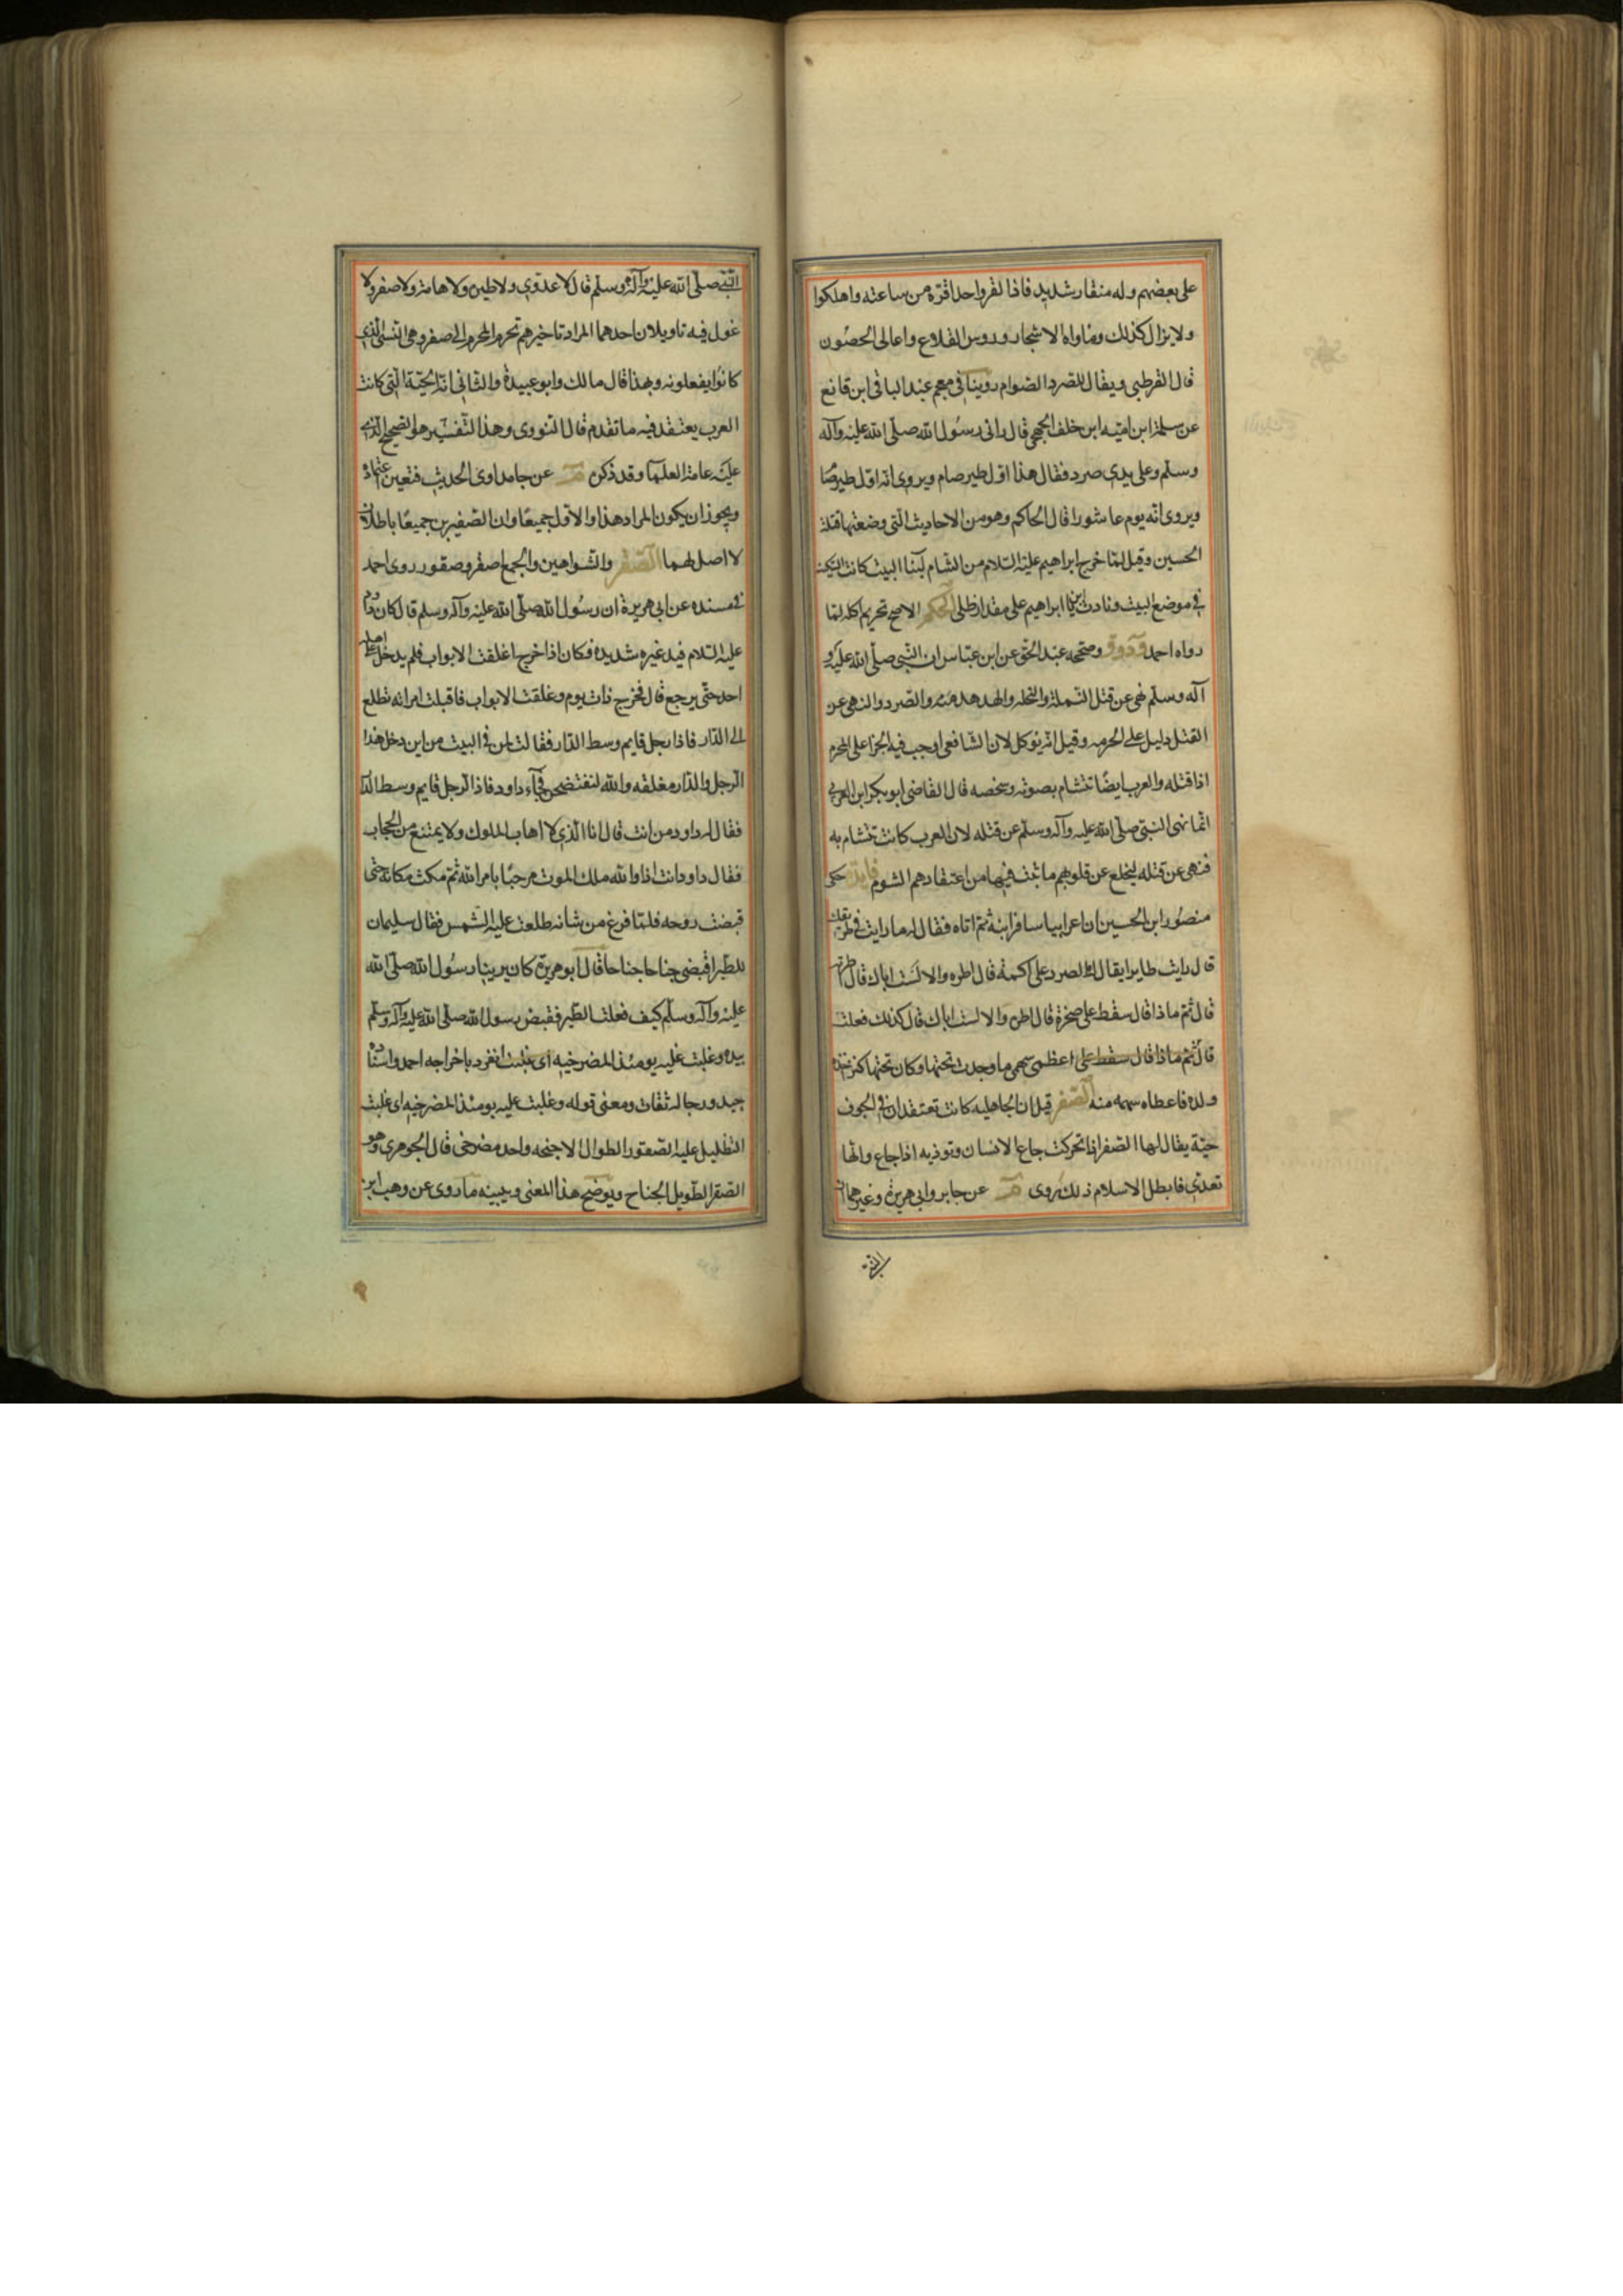 على بعضهم وله منقار شديد فاذا نقر واحدا قتله من ساعته واهلكوا
ولا يزال كذلك وماواه الاشجار وروس القلاع واعالى الحصون
قال القرطبى ويقال للصرد الصوام روينا فى معجم عبد الباقى ابن قانع
عن سلمة ابن امية ابن خلف الجمحى قال رانى رسول الله صلى الله عليه وآله
وسلم وعلى يدى صرد فقال هذا اول طير صام ويروى انه اول طير صام
ويروى انه يوم عاشورا قال الحاكم وهو من الاحاديث التى وضعتها قتلة
الحسين وقيل لما خرج ابراهيم عليه السلام من الشام لبنا البيت كانت السكينه
فى موضع البيت ونادت ابن يا ابراهيم على مقدار ظلى الحكم الاصح تحريم اكله لما
رواه احمد ود وق وصححه عبد الحق عن ابن عباس ان النبى صلى الله عليه و
آله وسلم نهى عن قتل النملة والنحله والهدهد والصرد والنهى عن
القتل دليل على الحرمه وقيل انه يوكل لان الشافعى اوجب فيه الجزا على المحرم
اذا قتله والعرب ايضا تتشام بصوته وشخصه قال القاضى ابو بكر ابن العربى
انما نهى النبى صلى الله عليه وآله وسلم عن قتله لان العرب كانت تتشام به
فنهى عن قتله ليخلع عن قلوبهم ما ثبت فيها من اعتقادهم الشوم فايدة حكى
منصور ابن الحسين ان اعرابيا سافر ابنه ثم اتاه فقال له ما رايت فى طريقك
قال رايت طايرا يقال له الصرد على اكمة قال اطره والا لست اباك قال اطرته
قال ثم ماذا قال سقط على صخرة قال اطره والا لست اباك قال كذلك فعلت
قال ثم ماذا قال سقط على اعظمى سهمى ما وجدت تحتها وكان تحتها كنز
ولده فاعطاه سهمه منه الصفر قيل ان الجاهليه كانت تعتقد ان فى الجوف
حية يقال لها الصفر اذا تحركت جاع الانسان وتوذيه اذا جاع وانها
تعدى فابطل الاسلام ذلك روى م عن جابر وابى هريرة وغيرهما ان
النبى
النبى صلى الله عليه وآله وسلم قال لا عدوى ولا طيره ولا هامه ولا صفر ولا
غول فيه تاويلان احدهما المراد تاخيرهم تحريم المحرم الى صفر وهى النسى الذى
كانوا يفعلونه وبهذا قال مالك وابو عبيدة والثانى انه الحية التى كانت
العرب يعتقد فيه ما تقدم قال النووى وهذا التفسير هو الصحيح الذى
عليه عامة العلما وقد ذكره م عن جابر راوى الحديث فتعين اعتماده
ويجوز ان يكون المراد هذا والاول جميعا وان الصفيرين جميعا باطلان
لا اصل لهما الصقر والشواهين والجمع اصقر وصقور روى احمد
فى مسنده عن ابى هريرة ان رسول الله صلى الله عليه وآله وسلم قال كان داود
عليه السلام فيه غيره شديده فكان اذا خرج اغلقت الابواب فلم يدخل على اهله
احد حتى يرجع قال فخرج ذات يوم وغلقت الابواب فاقبلت امراته تطلع
الى الدار فاذا رجل قايم وسط الدار فقالت لمن فى البيت من اين دخل هذا
الرجل والدار مغلقه والله لنفتضحن فجآء داود فاذا الرجل قايم وسط الدار
فقال له داود من انت قال انا الذى لا اهاب الملوك ولا يمتنع من الحجاب
فقال داود انت اذا والله ملك الموت مرحبا بامر الله ثم مكث مكانه حتى
قبضت روحه فلما فرغ من شانه طلعت عليه الشمس فقال سليمان
للطير اقبضى جناحا جناحا قال ابو هريرة كان يرينا رسول الله صلى الله
عليه وآله وسلم كيف فعلت الطير فقبض رسول الله صلى الله عليه وآله وسلم
بيده وغلبت عليه يومئذ المضرحيه انفرد باخراجه احمد واسناده
جيد ورجاله ثقات ومعنى قوله وغلبت عليه يومئذ المضرحيه اى غلبت
التظليل عليه الصقور الطوال الاجنحه واحده مضرحى قال الجوهرى وهو
الصقر الطويل الجناح ويوضح هذا المعنى ويبينه ما روى عن وهب ابن